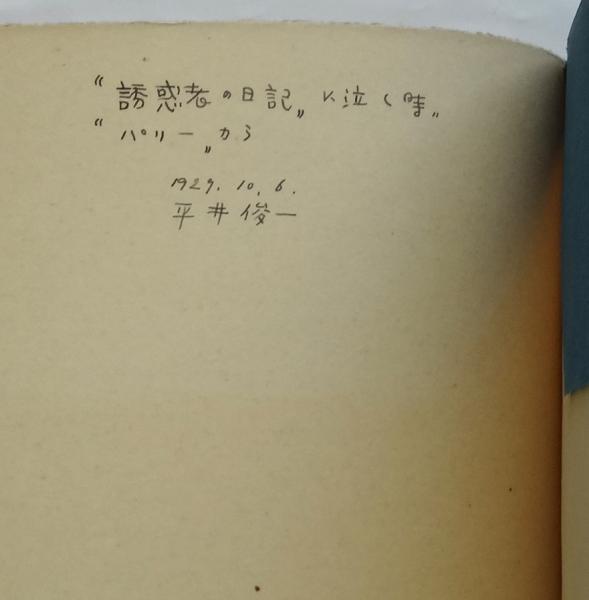 “誘惑者の日記„に泣く時„
“パリー„から
1929. 10. 6.
平井俊一